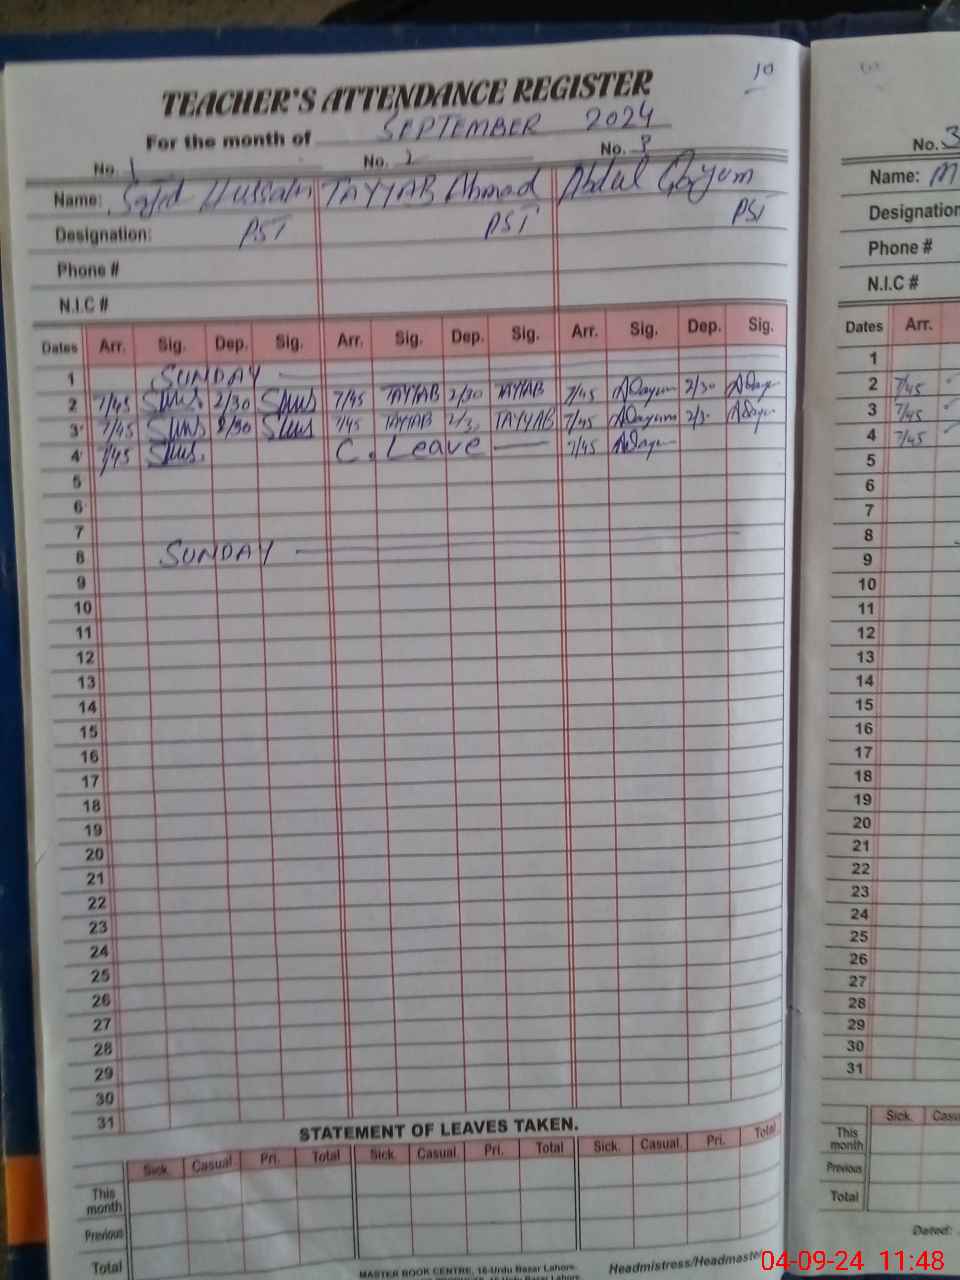 10
TEACHER'S ATTENDANCE REGISTER
For the month of SEPTEMBER 2024
No. 1 No. 2 No. 3
Name: Sajid Hussain TAYYAB Ahmad Abdul Qayum
Designation: PST PST PST
Phone #
N.I.C #
Dates Arr. Sig. Dep. Sig. Arr. Sig. Dep. Sig. Arr. Sig. Dep. Sig.
1 SUNDAY
2 7/45 2/30 7/45 TAYYAB 2/30 TAYYAB 7/45 AQayum 2/30 AQayum
3 7/45 2/30 7/45 TAYYAB 2/3 TAYYAB 7/45 AQayum 2/3 AQayum
4 7/45 C. Leave 7/45 AQayum
5
6
7
8 SUNDAY
9
10
11
12
13
14
15
16
17
18
19
20
21
22
23
24
25
26
27
28
29
30
31
STATEMENT OF LEAVES TAKEN.
Sick. Casual Pri. Total Sick. Casual Pri. Total Sick. Casual. Pri. Total
This month
Previous
Total
MASTER BOOK CENTRE, 16-Urdu Bazar Lahore.
Headmistress/Headmaster
No. 3
Name: M
Designation
Phone #
N.I.C #
Dates Arr.
1
2 7/45
3 7/45
4 7/45
5
6
7
8
9
10
11
12
13
14
15
16
17
18
19
20
21
22
23
24
25
26
27
28
29
30
31
Sick. Casu
This month
Previous
Total
Dated:
04-09-24 11:48